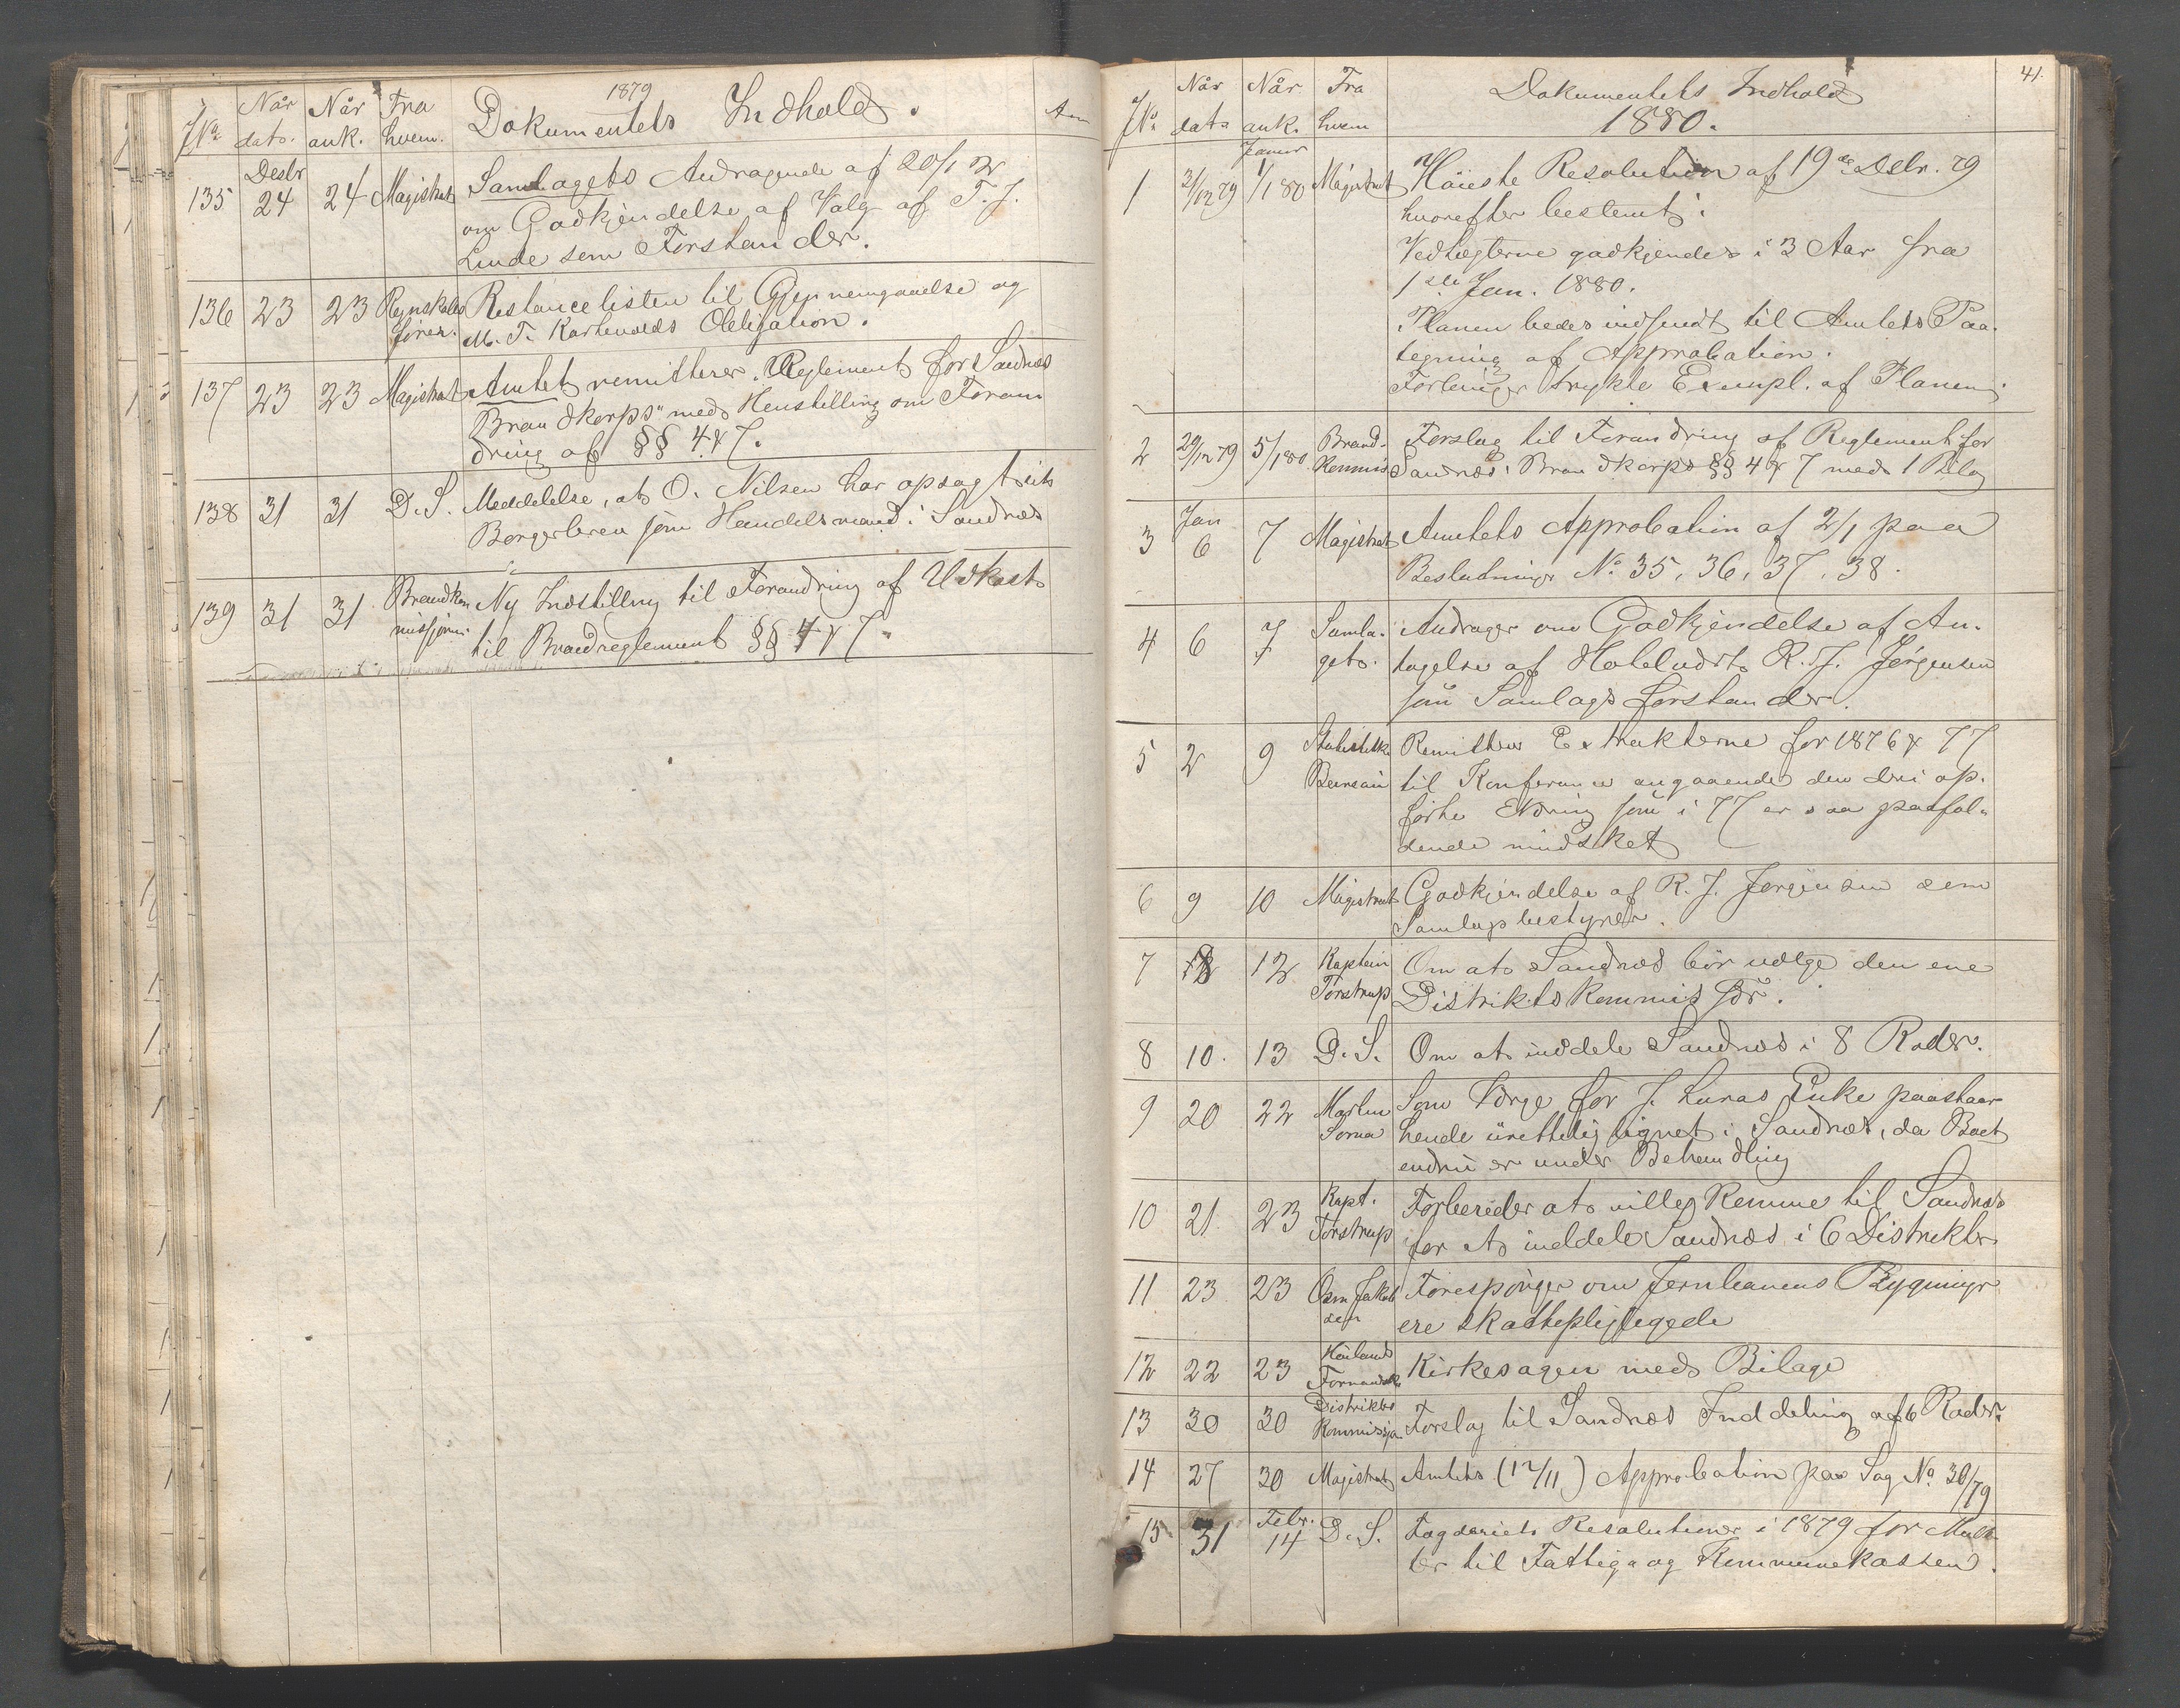 1879
No. Når dato. Når ank. Fra hvem. Dokumentets Indhold. Anm
Desbr
135 24 24 Magistrat Samlagets Andragende af 20/12
om Godkjendelse af Valg af T. J.
Linde som Forstander.
136 23 23 Regnskabs Restancelisten til Gjennemgaaelse og
fører. M. T. Obligation.
137 23 23 Magistrat Amtet remitterer "Reglement for Sandnæs
Brandkorps" med Henstilling om Foran-
dring af §§ 4 & 7.
138 31 31 D. S. Meddelelse, at O. Nilsen har opsagt sit
Borgerbrev som Handelsmand i Sandnæs
139 31 31 Brandkom Ny Indstilling til Forandring af Udkast
missionen til Brandreglement §§ 4 & 7.
41.
No. Når dato Når ank. Fra hvem Dokumentets Indhold
1880.
Januar
1 31/12 79 1/1 80 Magistrat Høieste Resolution af 19de Desbr. 79
hvorefter bestemt:
Vedtægterne godkjendes i 3 Aar fra
1ste Jan. 1880.
Planen bedes indsendt til Amtets Paa-
tegning af Approbation.
Forlanger trykte Exempl. af Planen.
2 29/12 79 5/1 80 Brand- Forslag til Forandring af Reglement for
Kommis Sandnæs Brandkorps §§ 4 & 7 med 1 Bilag
Jan
3 6 7 Magistrat Amtets Approbation af 2/1 paa
Beslutninger No. 35, 36, 37, 38.
4 6 7 Samla- Andrager om Godkjendelse af An-
get. tagelse af R. J. Jørgensen
som Samlagsforstander.
5 2 9 Statistiske Remitterer Extrakterne for 1876 & 77
Bureau til Konferance angaaende den deri op-
førte som i 77 er saa paafal-
dende mindsket
6 9 10 Magistrat Godkjendelse af R. J. Jørgensen som
Samlagsbestyrer.
7 12 Kaptein Om at Sandnæs bør vælge den ene
Torstrup Distriktskommissær.
8 10. 13 D. S. Om at inddele Sandnæs i 8 Roder.
9 20 22 Som Værge for J. Luras Enke paastaar
hende urettelig lignet i Sandnæs, da Boet
endnu er under Behandling
10 21. 23 Kapt. Forbereder at ville komme til Sandnæs
Torstrup for at inddele Sandnæs i 6 Distrikter
11 23 23 Jakob Forespørger om Jernbanens Bygninger
sen ere skattepligtige
12 22 23 Høilands Kirkesagen med Bilage
13 30 30 Distrikts Forslag til Sandnæs Inddeling af 6 Roder.
Kommissjon
14 27 30 Magistrat Amtets (12/11) Approbation paa Sag No. 30/79
Febr.
15 31 14 D. S. Fogderiets Resolutioner i 1879 for Mulk-
ter til Fattig- og Kommunekassen.